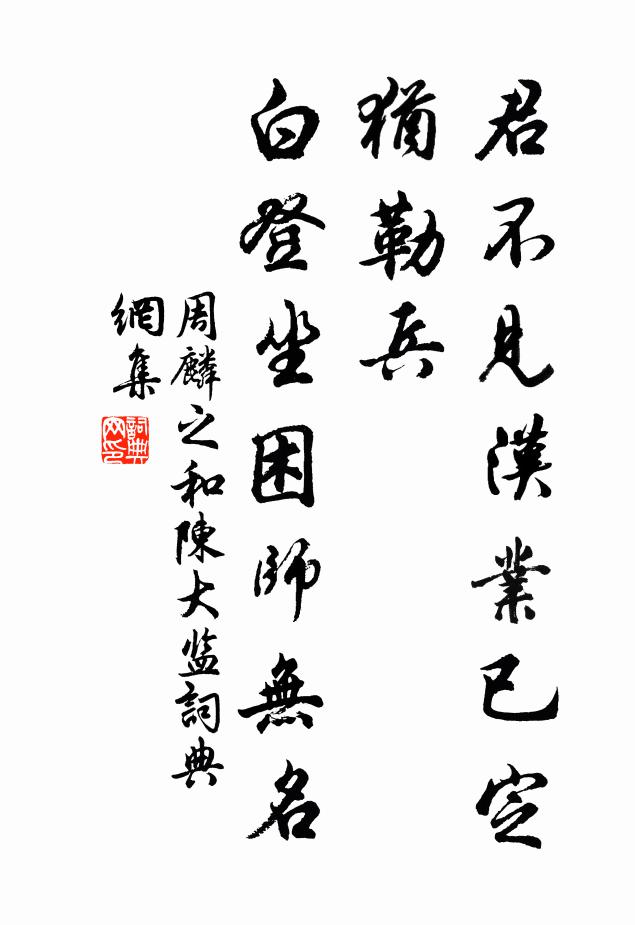 君不見漢業已定
猶勒兵
白登坐困師無名
周麟之和陳大监詞典
網集
詞典
网印